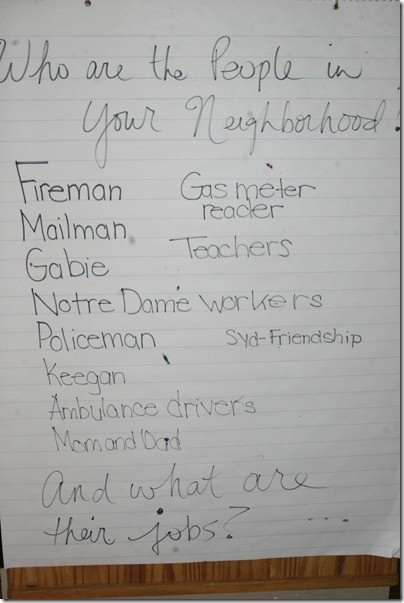 Who are the People in
Your Neighborhood?
Fireman
Gas meter
reader
Mailman
Teachers
Gabie
Notre Dame workers
Policeman
Syd-Friendship
Keegan
Ambulance drivers
Mom and Dad
And what are
their jobs? ...